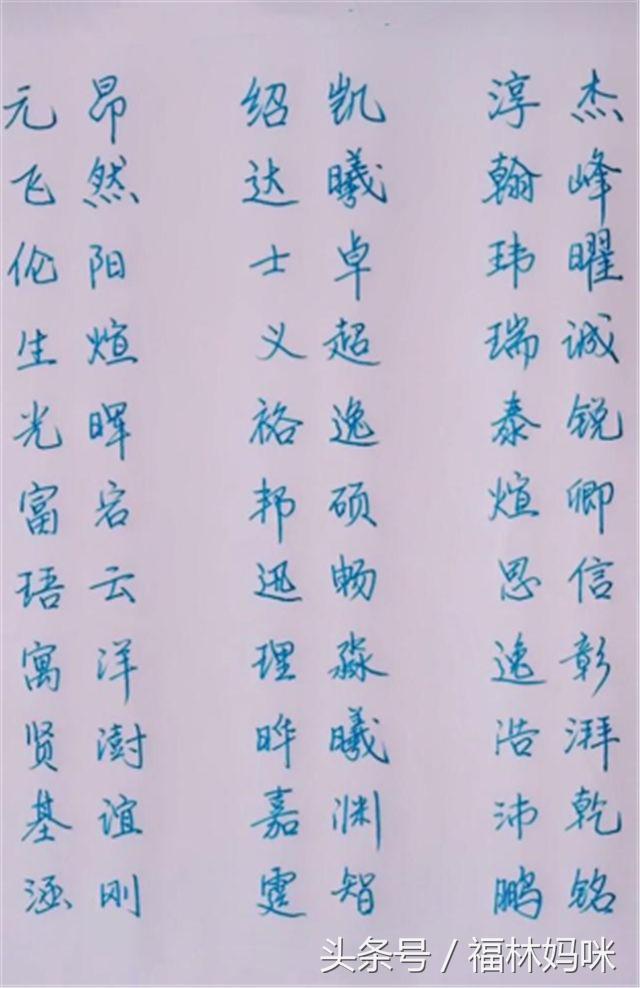 元昂 绍凯 淳杰
飞然 达曦 翰峰
伦阳 士卓 玮曜
生煊 义超 瑞诚
光晖 裕逸 泰锐
富宕 邦硕 煊卿
珸云 迅畅 思信
寓洋 理淼 逸彰
贤澍 晔曦 浩湃
基谊 嘉渊 沛乾
涵刚 霆智 鹏铭
头条号 / 福林妈咪